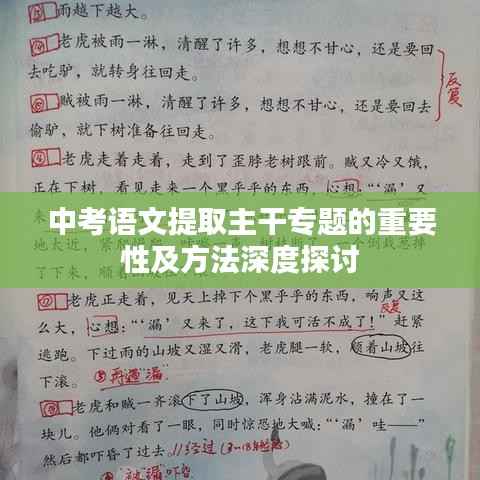 雨越下越大。
老虎被雨一淋，清醒了许多，想想不甘心，还是要回
去吃驴，就转身往回走。
反复
贼被雨一淋，清醒了许多，想想不甘心，还是要回去
偷驴，就下树准备往回走。
老虎走着走着，走到了歪脖老树跟前。贼又冷又饿，
正在下树，看见走来一个黑乎乎的东西，心想：“‘漏’又
来
中考语文提取主干专题的重要
性及方法深度探讨
地大近
老虎正走着，见天上掉下个黑乎乎的东西，响声又这
反复
么大，心想：“‘漏’又来了，这下我可活不成了！”赶紧
逃跑。下过雨的山坡又湿又滑，老虎腿一软，顺着山坡往
下滚。⑧再遇“漏”
老虎和贼一齐滚下了山坡，浑身沾满泥水，撞在了一
块儿。他俩对看了一眼，同时惊恐地大喊：“‘漏’哇——”
然后都吓昏了过去。//经过
被“漏”吓昏